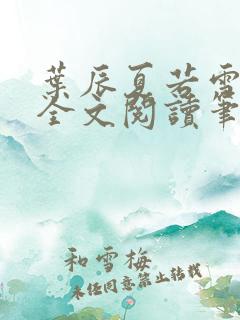 葉辰夏若雪
全文閱讀筆
和雪梅
未经同意禁止转载